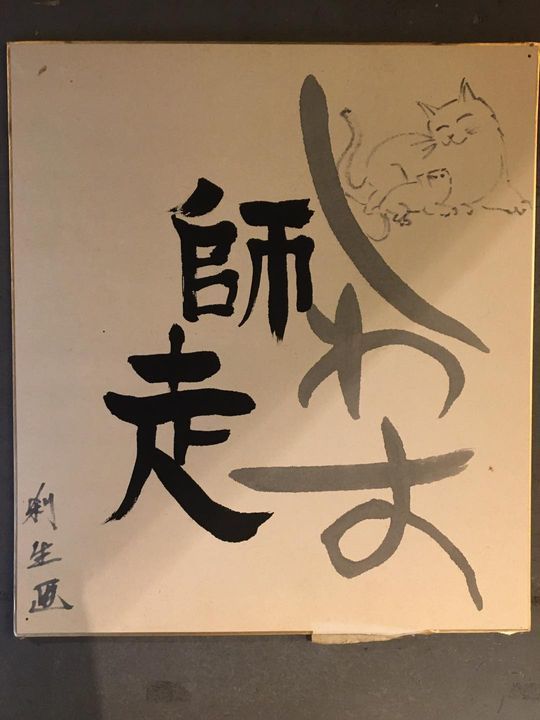 しわす
師走
利生画